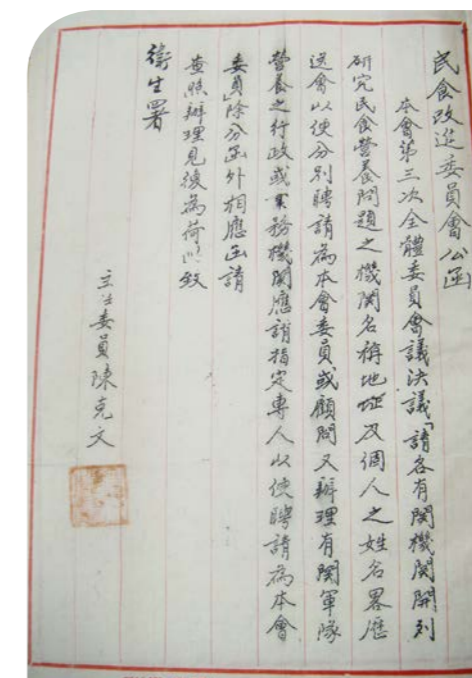 民食改進委員會公函
本會第三次全體委員會議決議「請各有関機関開列
研究民食營養問題之機関名稱地址及個人之姓名畧歷
送會以便分別聘請為本會委員或顧問又辦理有関軍隊
營養之行政或業務機関應請指定專人以便聘請為本會
委員除分函外相應函請
查照辦理見復為荷此致
衛生署
主任委員陳克文